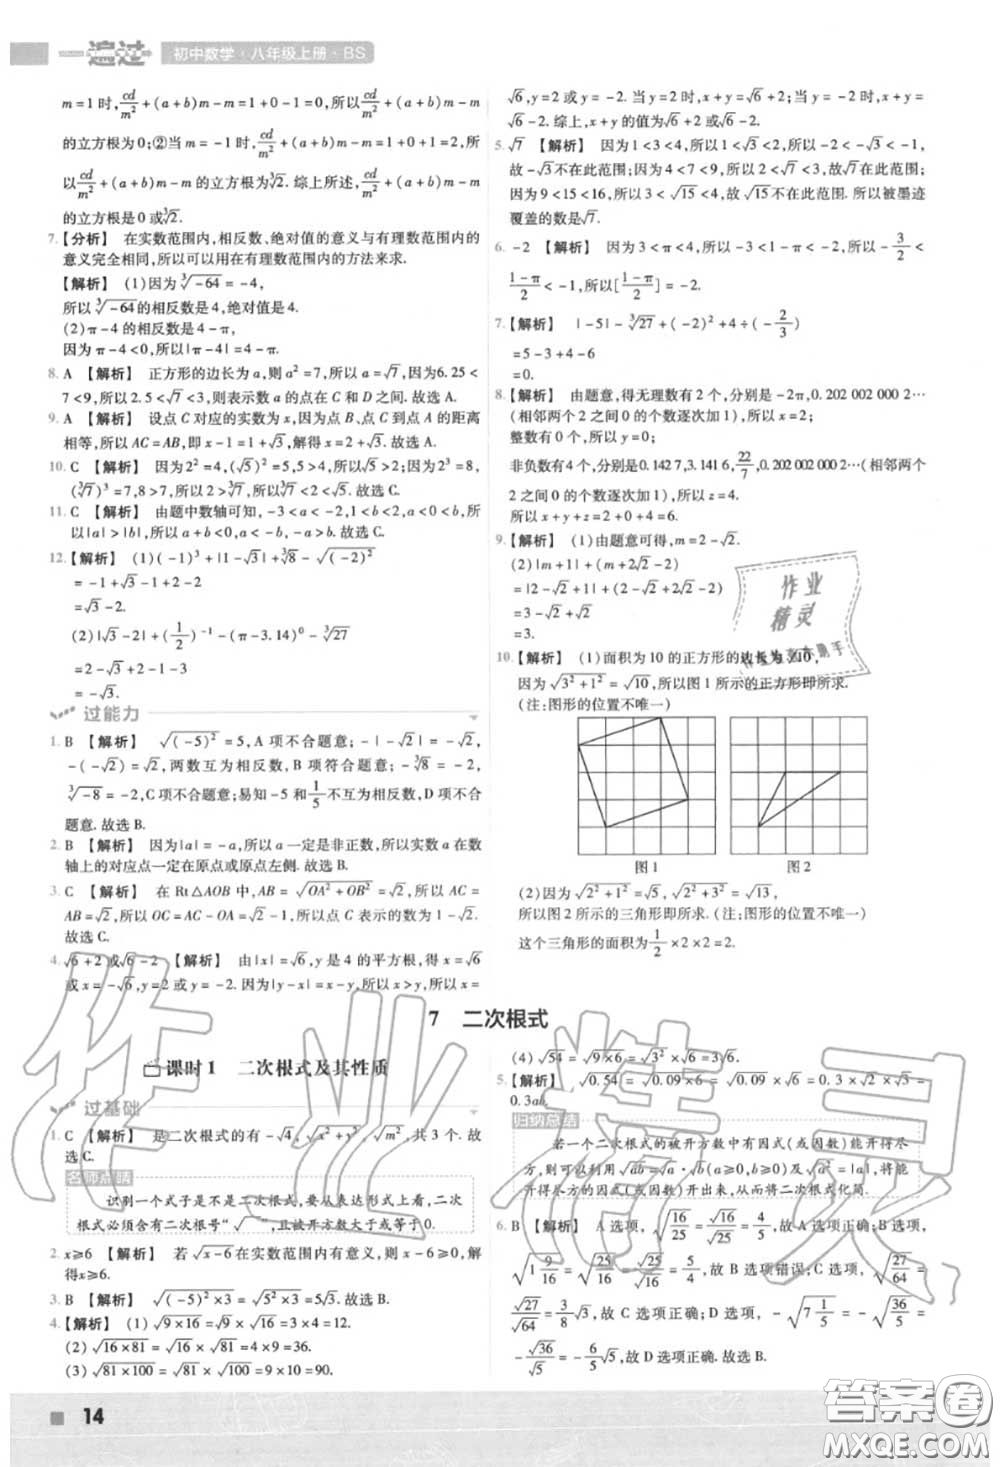 一遍过 初中数学·八年级上册·BS
m=1时,cd/m²+(a+b)m-m=1+0-1=0,所以cd/m²+(a+b)m-m
的立方根为0;②当m=-1时,cd/m²+(a+b)m-m=1+0+1=2,所
以cd/m²+(a+b)m-m的立方根为∛2.综上所述,cd/m²+(a+b)m-m
的立方根是0或∛2.
7.【分析】 在实数范围内,相反数、绝对值的意义与有理数范围内的
意义完全相同,所以可以用在有理数范围内的方法来求.
【解析】 (1)因为∛-64=-4,
所以∛-64的相反数是4,绝对值是4.
(2)π-4的相反数是4-π,
因为π-4<0,所以|π-4|=4-π.
8. A 【解析】 正方形的边长为a,则a²=7,所以a=√7,因为6.25<
7<9,所以2.5<√7<3,则表示数a的点在C和D之间.故选A.
9. A 【解析】 设点C对应的实数为x,因为点B、点C到点A的距离
相等,所以AC=AB,即x-1=1+√3,解得x=2+√3.故选A.
10. C 【解析】 因为2²=4,(√5)²=5,5>4,所以2<√5.因为2³=8,
(∛7)³=7,8>7,所以2>∛7,所以∛7<2<√5.故选C.
11. C 【解析】 由题中数轴可知,-3<a<-2,1<b<2,a<0<b,所
以|a|>|b|,因为a<0,b>0,所以a<-b,-a>b.故选C.
12.【解析】 (1)(-1)³+|1-√3|+∛8-√(-2)²
=-1+√3-1+2-2
=√3-2.
(2)|√3-2|+(1/2)⁻¹-(π-3.14)⁰-∛27
=2-√3+2-1-3
=-√3.
过能力
1. B 【解析】 √(-5)²=5,A项不合题意;-|-√2|=-√2,
-(-√2)=√2,两数互为相反数,B项符合题意;-∛8=-2,
∛-8=-2,C项不合题意;易知-5和1/5不互为相反数,D项不合
题意.故选B.
2. B 【解析】 因为|a|=-a,所以a一定是非正数,所以实数a在数
轴上的对应点一定在原点或原点左侧.故选B.
3. C 【解析】 在Rt△AOB中,AB=√OA²+OB²=√2,所以AC=
AB=√2,所以OC=AC-OA=√2-1,所以点C表示的数为√2-1.
故选C.
4. √6+2或√6-2 【解析】 由|x|=√6,y是4的平方根,得x=√6
或x=-√6,y=2或y=-2.因为|y-x|=x-y,所以x≥y,所以x=
√6,y=2或y=-2.当y=2时,x+y=√6+2;当y=-2时,x+y=
√6-2.综上,x+y的值为√6+2或√6-2.
5. √7 【解析】 因为1<3<4,所以1<√3<2,所以-2<-√3<-1,
故-√3不在此范围;因为4<7<9,所以2<√7<3,故√7在此范围;因
为9<15<16,所以3<√15<4,故√15不在此范围.所以被墨迹
覆盖的数是√7.
6. -2 【解析】 因为3<π<4,所以-3<1-π<-2,所以-3/2<
(1-π)/2<-1,所以[(1-π)/2]=-2.
7.【解析】 |-5|-∛27+(-2)²+4÷(-2/3)
=5-3+4-6
=0.
8.【解析】 由题意,得无理数有2个,分别是-2π,0.202 002 000 2…
(相邻两个2之间0的个数逐次加1),所以x=2;
整数有0个,所以y=0;
非负数有4个,分别是0.142 7,3.141 6,22/7,0.202 002 000 2…(相邻两个
2之间0的个数逐次加1),所以z=4.
所以x+y+z=2+0+4=6.
9.【解析】 (1)由题意可得,m=2-√2.
(2)|m+1|+(m+2√2-2)
=|2-√2+1|+(2-√2+2√2-2)
=3-√2+√2
=3.
10.【解析】 (1)面积为10的正方形的边长为√10,
因为√3²+1²=√10,所以图1所示的正方形即所求.
(注:图形的位置不唯一)
图1 图2
(2)因为√2²+1²=√5,√2²+3²=√13,
所以图2所示的三角形即所求.(注:图形的位置不唯一)
这个三角形的面积为1/2×2×2=2.
7 二次根式
课时1 二次根式及其性质
过基础
1. C 【解析】 是二次根式的有-√4,√x²+y²,√m²,共3个.故
选C.
名师点睛
识别一个式子是不是二次根式,要从表达形式上看,二次
根式必须含有二次根号“√ ”,且被开方数大于或等于0.
2. x≥6 【解析】 若√x-6在实数范围内有意义,则x-6≥0,解
得x≥6.
3. B 【解析】 √(-5)²×3=√5²×3=5√3.故选B.
4.【解析】 (1)√9×16=√9×√16=3×4=12.
(2)√16×81=√16×√81=4×9=36.
(3)√81×100=√81×√100=9×10=90.
(4)√54=√9×6=√3²×√6=3√6.
5.
0.3ab.
归纳总结
若一个二次根式的被开方数中有因式(或因数)能开得尽
方,则可以利用√ab=√a·√b(a≥0,b≥0)及√a²=|a|,将能
开得尽方的因式(或因数)开出来,从而将二次根式化简.
6. B 【解析】 A选项,√16/25=√16/√25=4/5,故A选项正确;B选项,
√1 9/16=√25/16=√25/√16=5/4,故B选项错误;C选项,√27/64=
√27/√64=3/8√3,故C选项正确;D选项,-√7 1/5=-√36/5=
-√36/√5=-6/5√5,故D选项正确.故选B.
14
作业
精灵
作业精灵
答案圈
MXQE.COM